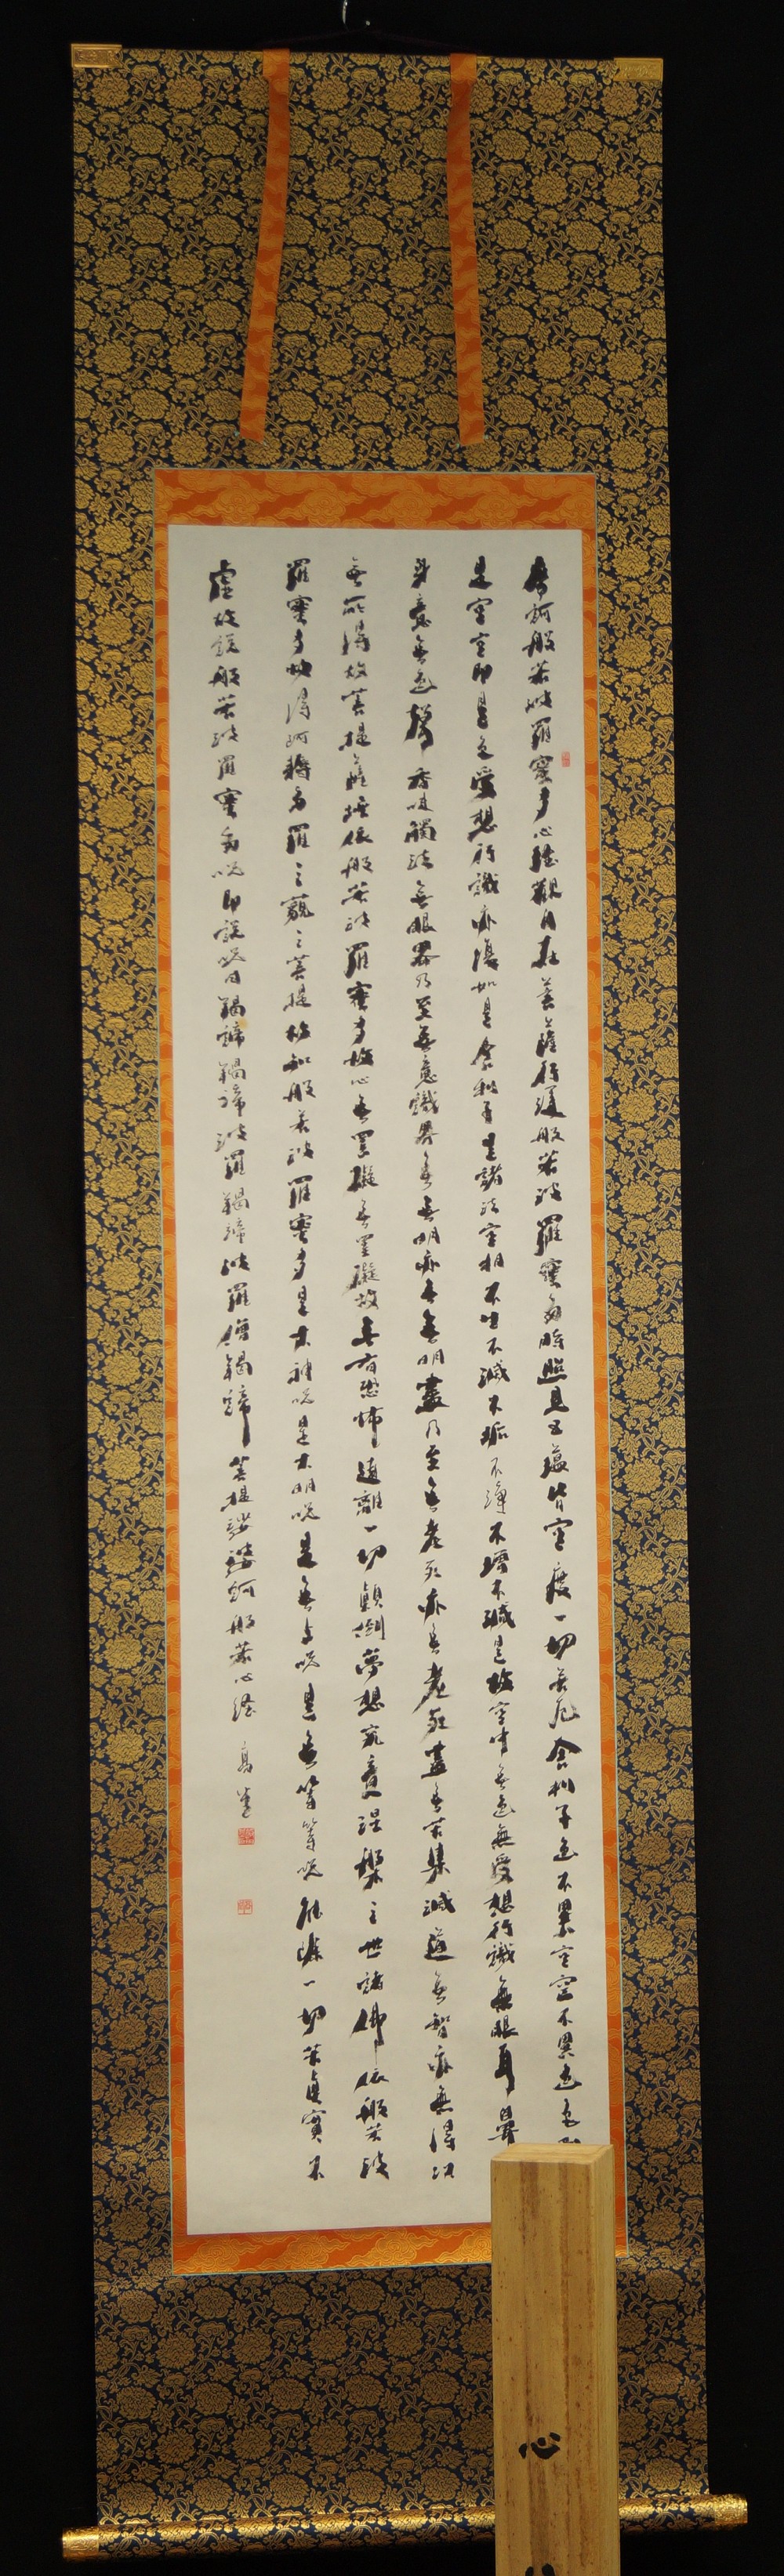 摩訶般若波羅蜜多心経觀自在菩薩行深般若波羅蜜多時照見五蘊皆空度一切苦厄舍利子色不異空空不異色色
是空空即是色受想行識亦復如是舍利子是諸法空相不生不滅不垢不淨不増不減是故空中無色無受想行識無眼耳鼻
身意無色聲香味觸法無眼界乃至無意識界無無明亦無無明盡乃至無老死亦無老死盡無苦集滅道無智亦無得以
無所得故菩提薩埵依般若波羅蜜多故心無罣礙無罣礙故無有恐怖遠離一切顛倒夢想究竟涅槃三世諸佛依般若波
羅蜜多故得阿耨多羅三藐三菩提故知般若波羅蜜多是大神呪是大明呪是無上呪是無等等呪能除一切苦真實不
虛故説般若波羅蜜多呪即説呪曰羯諦羯諦波羅羯諦波羅僧羯諦菩提娑婆訶般若心経
心